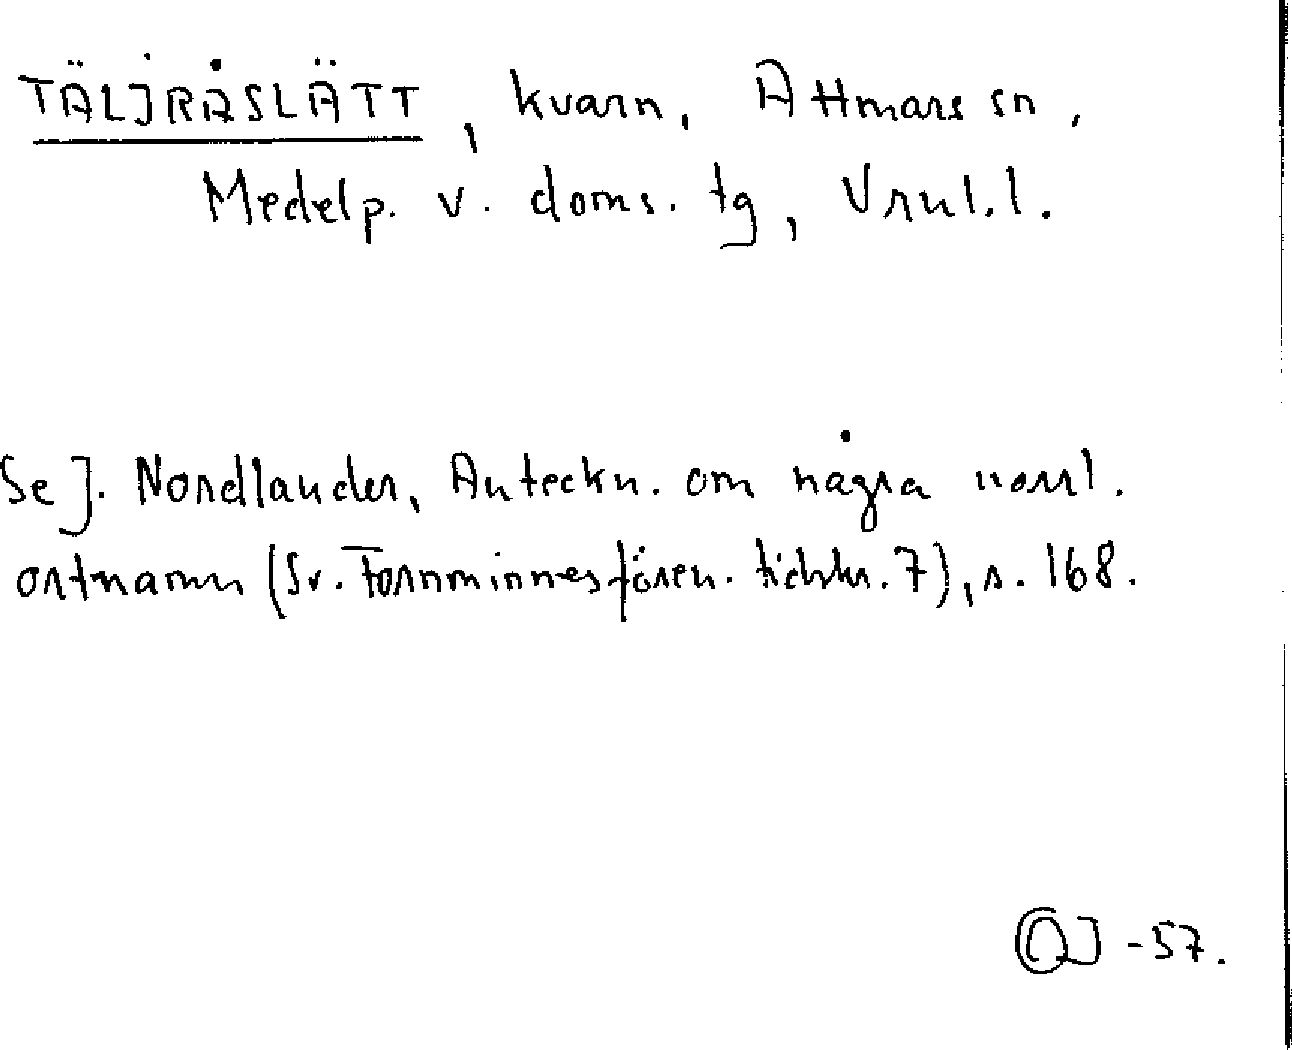 TÄLJRÅSLÄTT, kvarn, Attmars sn,
Medelp. v. doms. tg, Vnul.l.
Se J. Nordlander, Anteckn. om några norrl.
ortnamn (Sv. Fornminnesfören. tidskr. 7), s. 168.
OJ -57.